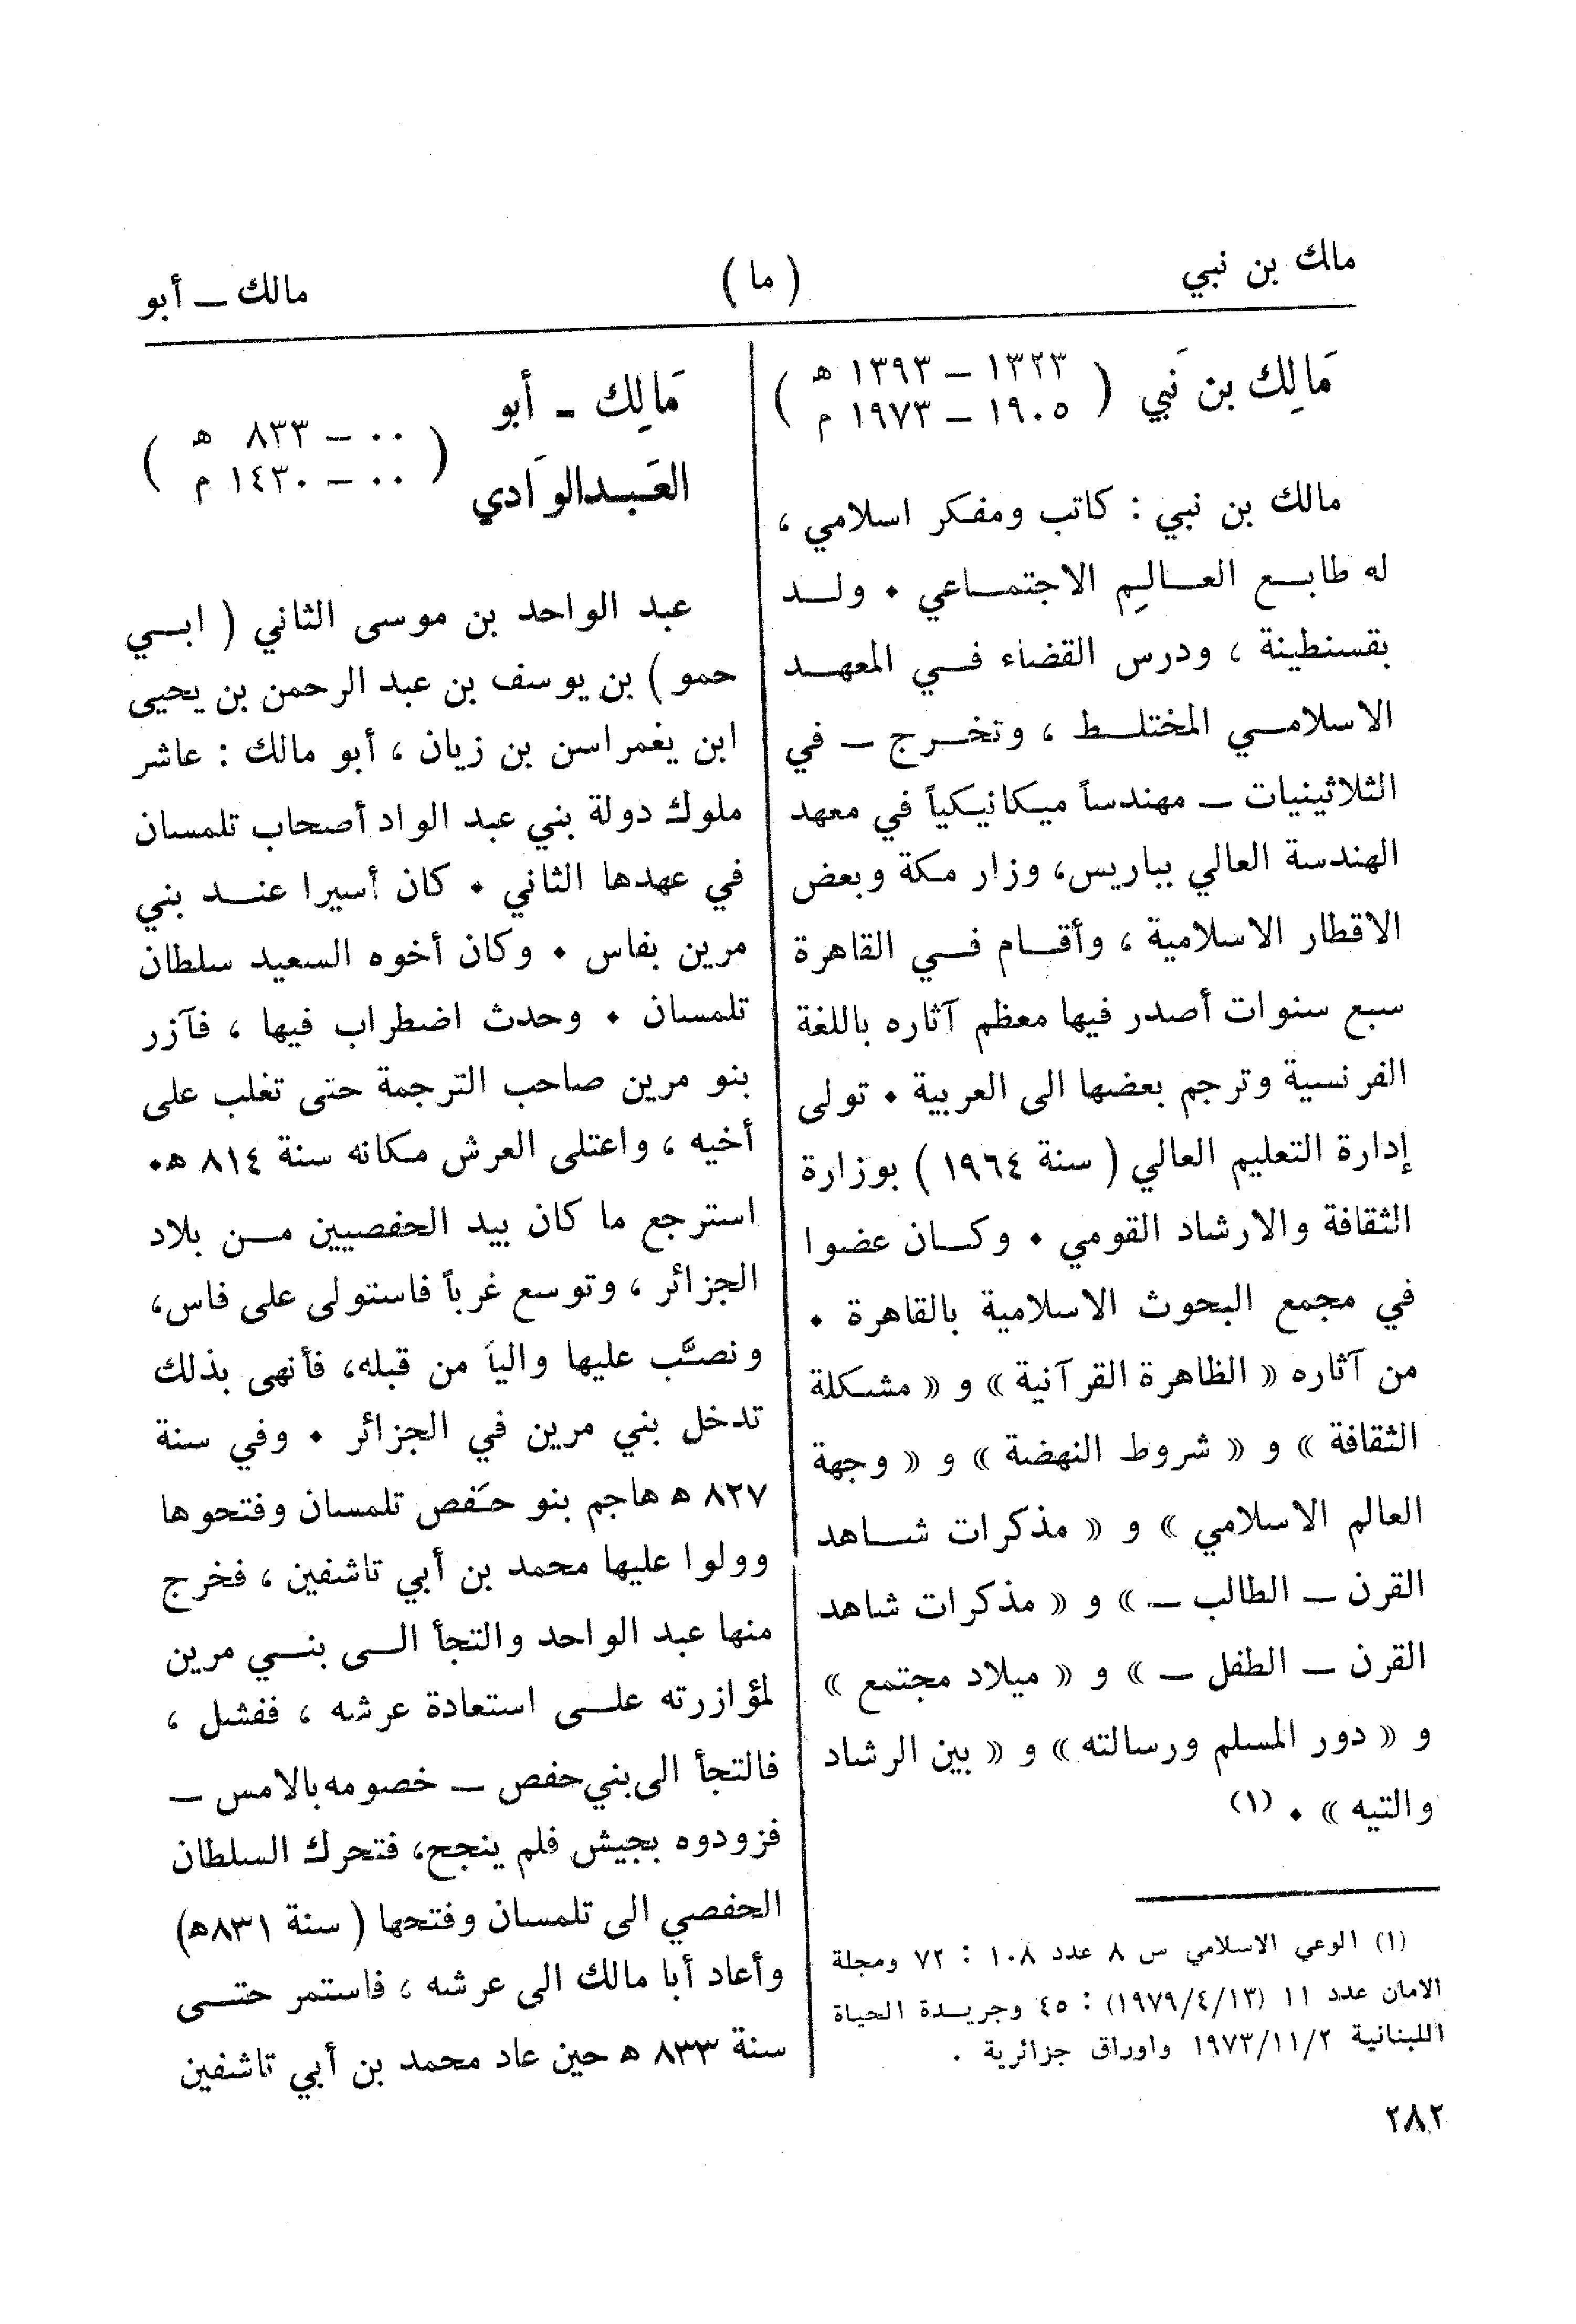 مالك بن نبي
( ما )
مالك ــ أبو
مَالِك بن نَبي ( ١٣٢٣ ــ ١٣٩٣ هـ
١٩٠٥ ــ ١٩٧٣ م )
مالك بن نبي : كاتب ومفكر اسلامي ،
له طابع العالِم الاجتماعي . ولد
بقسنطينة ، ودرس القضاء في المعهد
الاسلامي المختلط ، وتخرج ــ في
الثلاثينيات ــ مهندساً ميكانيكياً في معهد
الهندسة العالي بباريس، وزار مكة وبعض
الاقطار الاسلامية ، وأقام في القاهرة
سبع سنوات أصدر فيها معظم آثاره باللغة
الفرنسية وترجم بعضها الى العربية . تولى
إدارة التعليم العالي ( سنة ١٩٦٤ ) بوزارة
الثقافة والارشاد القومي . وكان عضوا
في مجمع البحوث الاسلامية بالقاهرة .
من آثاره « الظاهرة القرآنية » و « مشكلة
الثقافة » و « شروط النهضة » و « وجهة
العالم الاسلامي » و « مذكرات شاهد
القرن ــ الطالب ــ » و « مذكرات شاهد
القرن ــ الطفل ــ » و « ميلاد مجتمع »
و « دور المسلم ورسالته » و « بين الرشاد
والتيه » . (١)
(١) الوعي الاسلامي س ٨ عدد ١٠٨ : ٧٢ ومجلة
الامان عدد ١١ (١٩٧٩/٤/١٣) : ٤٥ وجريدة الحياة
اللبنانية ١٩٧٣/١١/٢ واوراق جزائرية .
مَالِك ــ أبو
العَبدالوَادي
( ٠٠ ــ ٨٣٣ هـ
٠٠ ــ ١٤٣٠ م )
عبد الواحد بن موسى الثاني ( ابي
حمو ) بن يوسف بن عبد الرحمن بن يحيى
ابن يغمراسن بن زيان ، أبو مالك : عاشر
ملوك دولة بني عبد الواد أصحاب تلمسان
في عهدها الثاني . كان أسيرا عند بني
مرين بفاس . وكان أخوه السعيد سلطان
تلمسان . وحدث اضطراب فيها ، فآزر
بنو مرين صاحب الترجمة حتى تغلب على
أخيه ، واعتلى العرش مكانه سنة ٨١٤ هـ.
استرجع ما كان بيد الحفصيين من بلاد
الجزائر ، وتوسع غرباً فاستولى على فاس،
ونصَّب عليها والياً من قبله، فأنهى بذلك
تدخل بني مرين في الجزائر . وفي سنة
٨٢٧ هـ هاجم بنو حَفص تلمسان وفتحوها
وولوا عليها محمد بن أبي تاشفين ، فخرج
منها عبد الواحد والتجأ الى بني مرين
لمؤازرته على استعادة عرشه ، ففشل ،
فالتجأ الى بني حفص ــ خصومه بالامس ــ
فزودوه بجيش فلم ينجح، فتحرك السلطان
الحفصي الى تلمسان وفتحها ( سنة ٨٣١هـ)
وأعاد أبا مالك الى عرشه ، فاستمر حتى
سنة ٨٣٣ هـ حين عاد محمد بن أبي تاشفين
٢٨٢